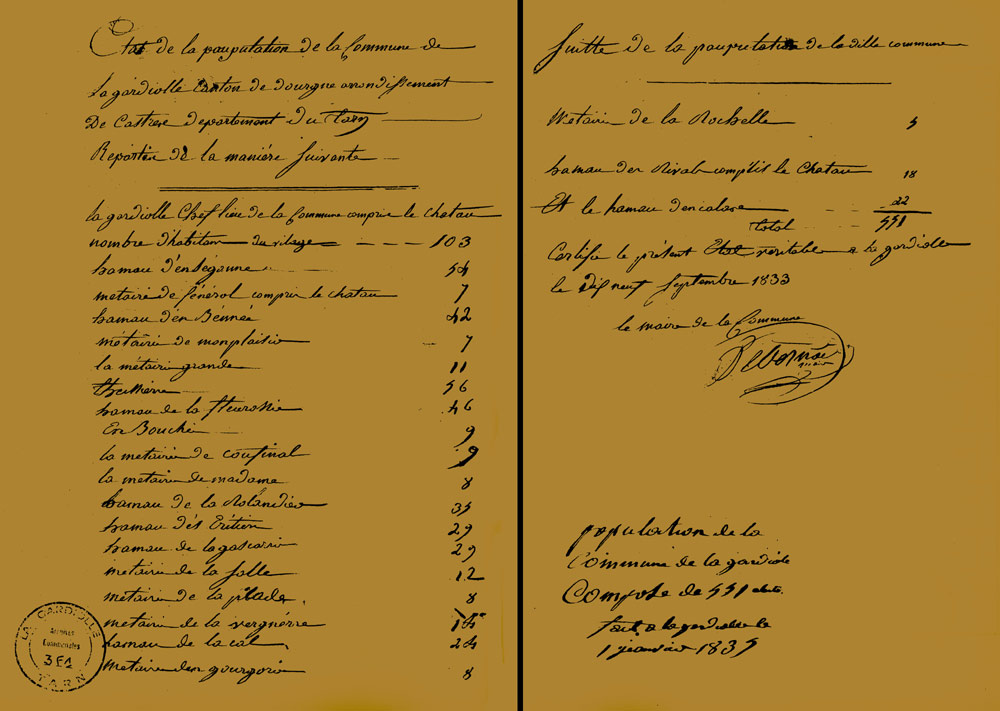 Etat de la pauputation de la Commune de
la gardiolle Canton de dourgne arrondissement
De Castres departement du Tarn
Repartie de la maniére suivante
la gardiolle Chef lieu de la Commune compris le chatau
nombre d'habitan du vilage 103
hamau d'enséganne 54
metairie de sénérol compris le chatau 7
hamau d'en Bennée 42
metairie de monplaisir 7
la métairi grande 11
56
hamau de la fleuronie 46
En Bouché 9
la metairie de coufinal 9
la metairie de madame 8
hamau de la Rolandie 35
hamau dés 29
hamau de lagascarie 29
metairie de la salle 12
metairie de la plade 8
metairie de la vergnére 14
hamau de la cal 24
metairie den gourgorie 8
LA GARDIOLLE
Archives
Communales
3F1
TARN
suitte de la pauputation de la ditte commune
Metairie de la Rochelle 5
hamau des Rivals complis le Chatau 18
Et le hamau d'encalare 22
total 551
Certifie le présent Etat veritable a la gardiolle
le dix neuf Septembre 1833
le maire de la Commune
maire
population de la
Commune de la gardiole
Compose de 551
fait a la gardiole le
1 janvier 1835